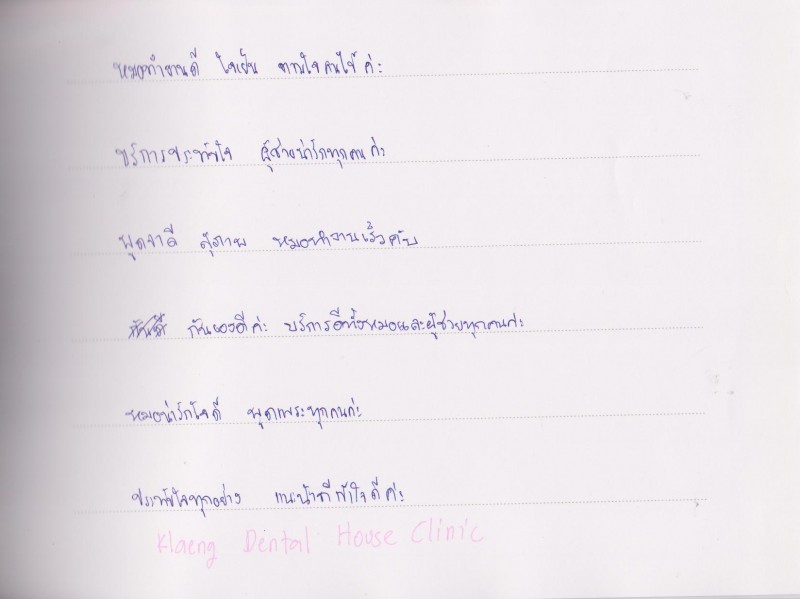 หมอทำงานดี ใจเย็น ตามใจคนไข้ค่ะ
บริการประทับใจ ผู้ช่วยน่ารักทุกคนค่ะ
พูดจาดี สุภาพ หมอทำงานเร็วครับ
กันเองดีค่ะ บริการดีทั้งหมอและผู้ช่วยทุกคนค่ะ
หมอน่ารักใจดี พูดเพราะทุกคนค่ะ
ประทับใจทุกอย่าง แนะนำดีเข้าใจดีค่ะ
Klaeng Dental House Clinic